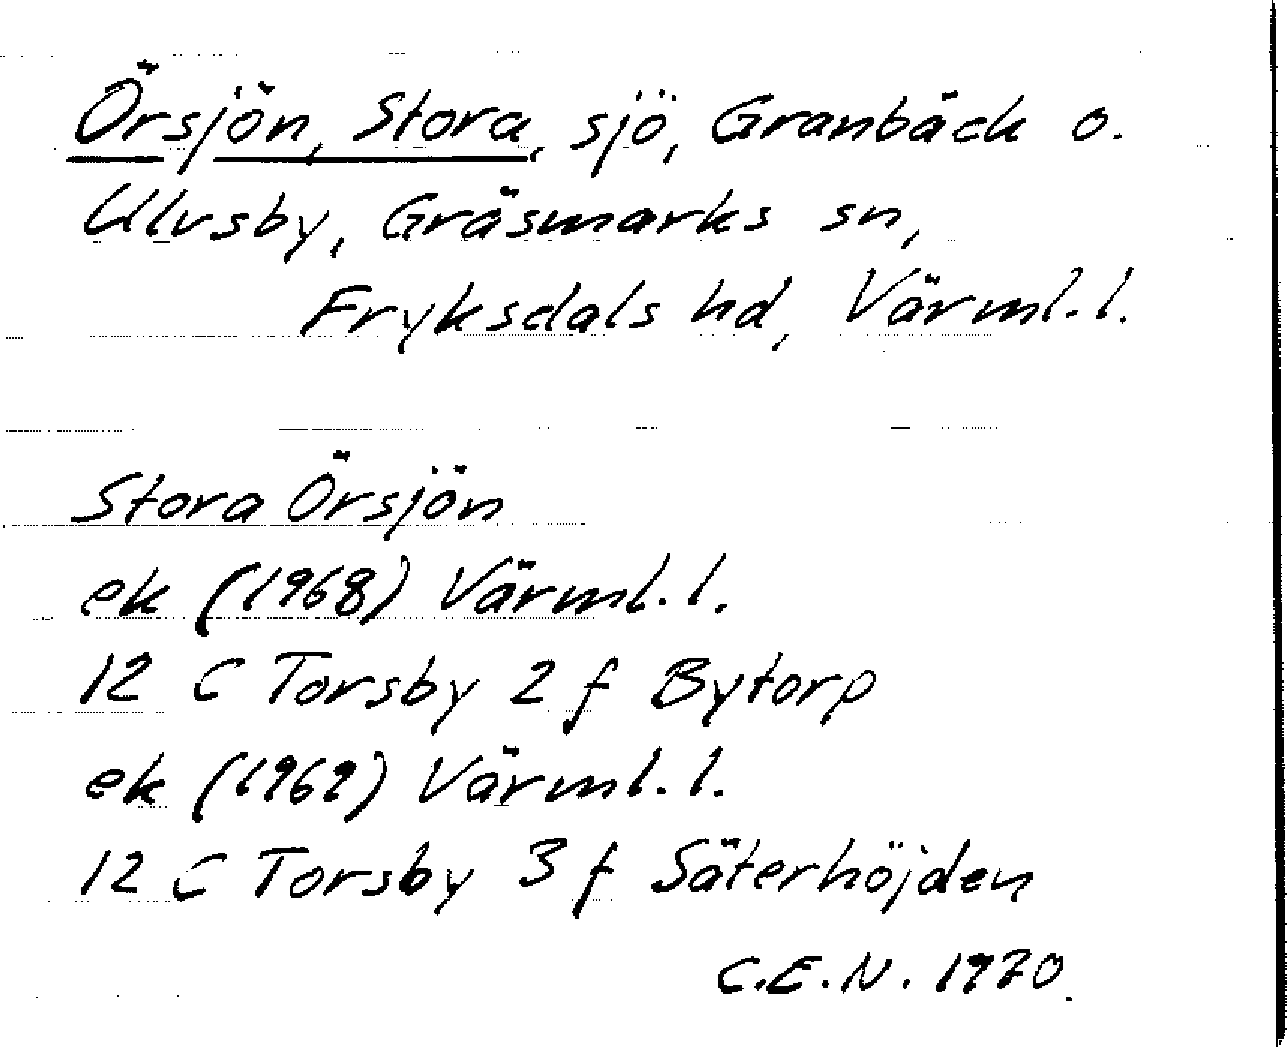 Örsjön, Stora, sjö, Granbäck o.
Ulvsby, Gräsmarks sn,
Fryksdals hd, Värml. l.
Stora Örsjön
ek (1968) Värml. l.
12 C Torsby 2 f Bytorp
ek (1969) Värml. l.
12 C Torsby 3 f Säterhöjden
C.E.N. 1970.